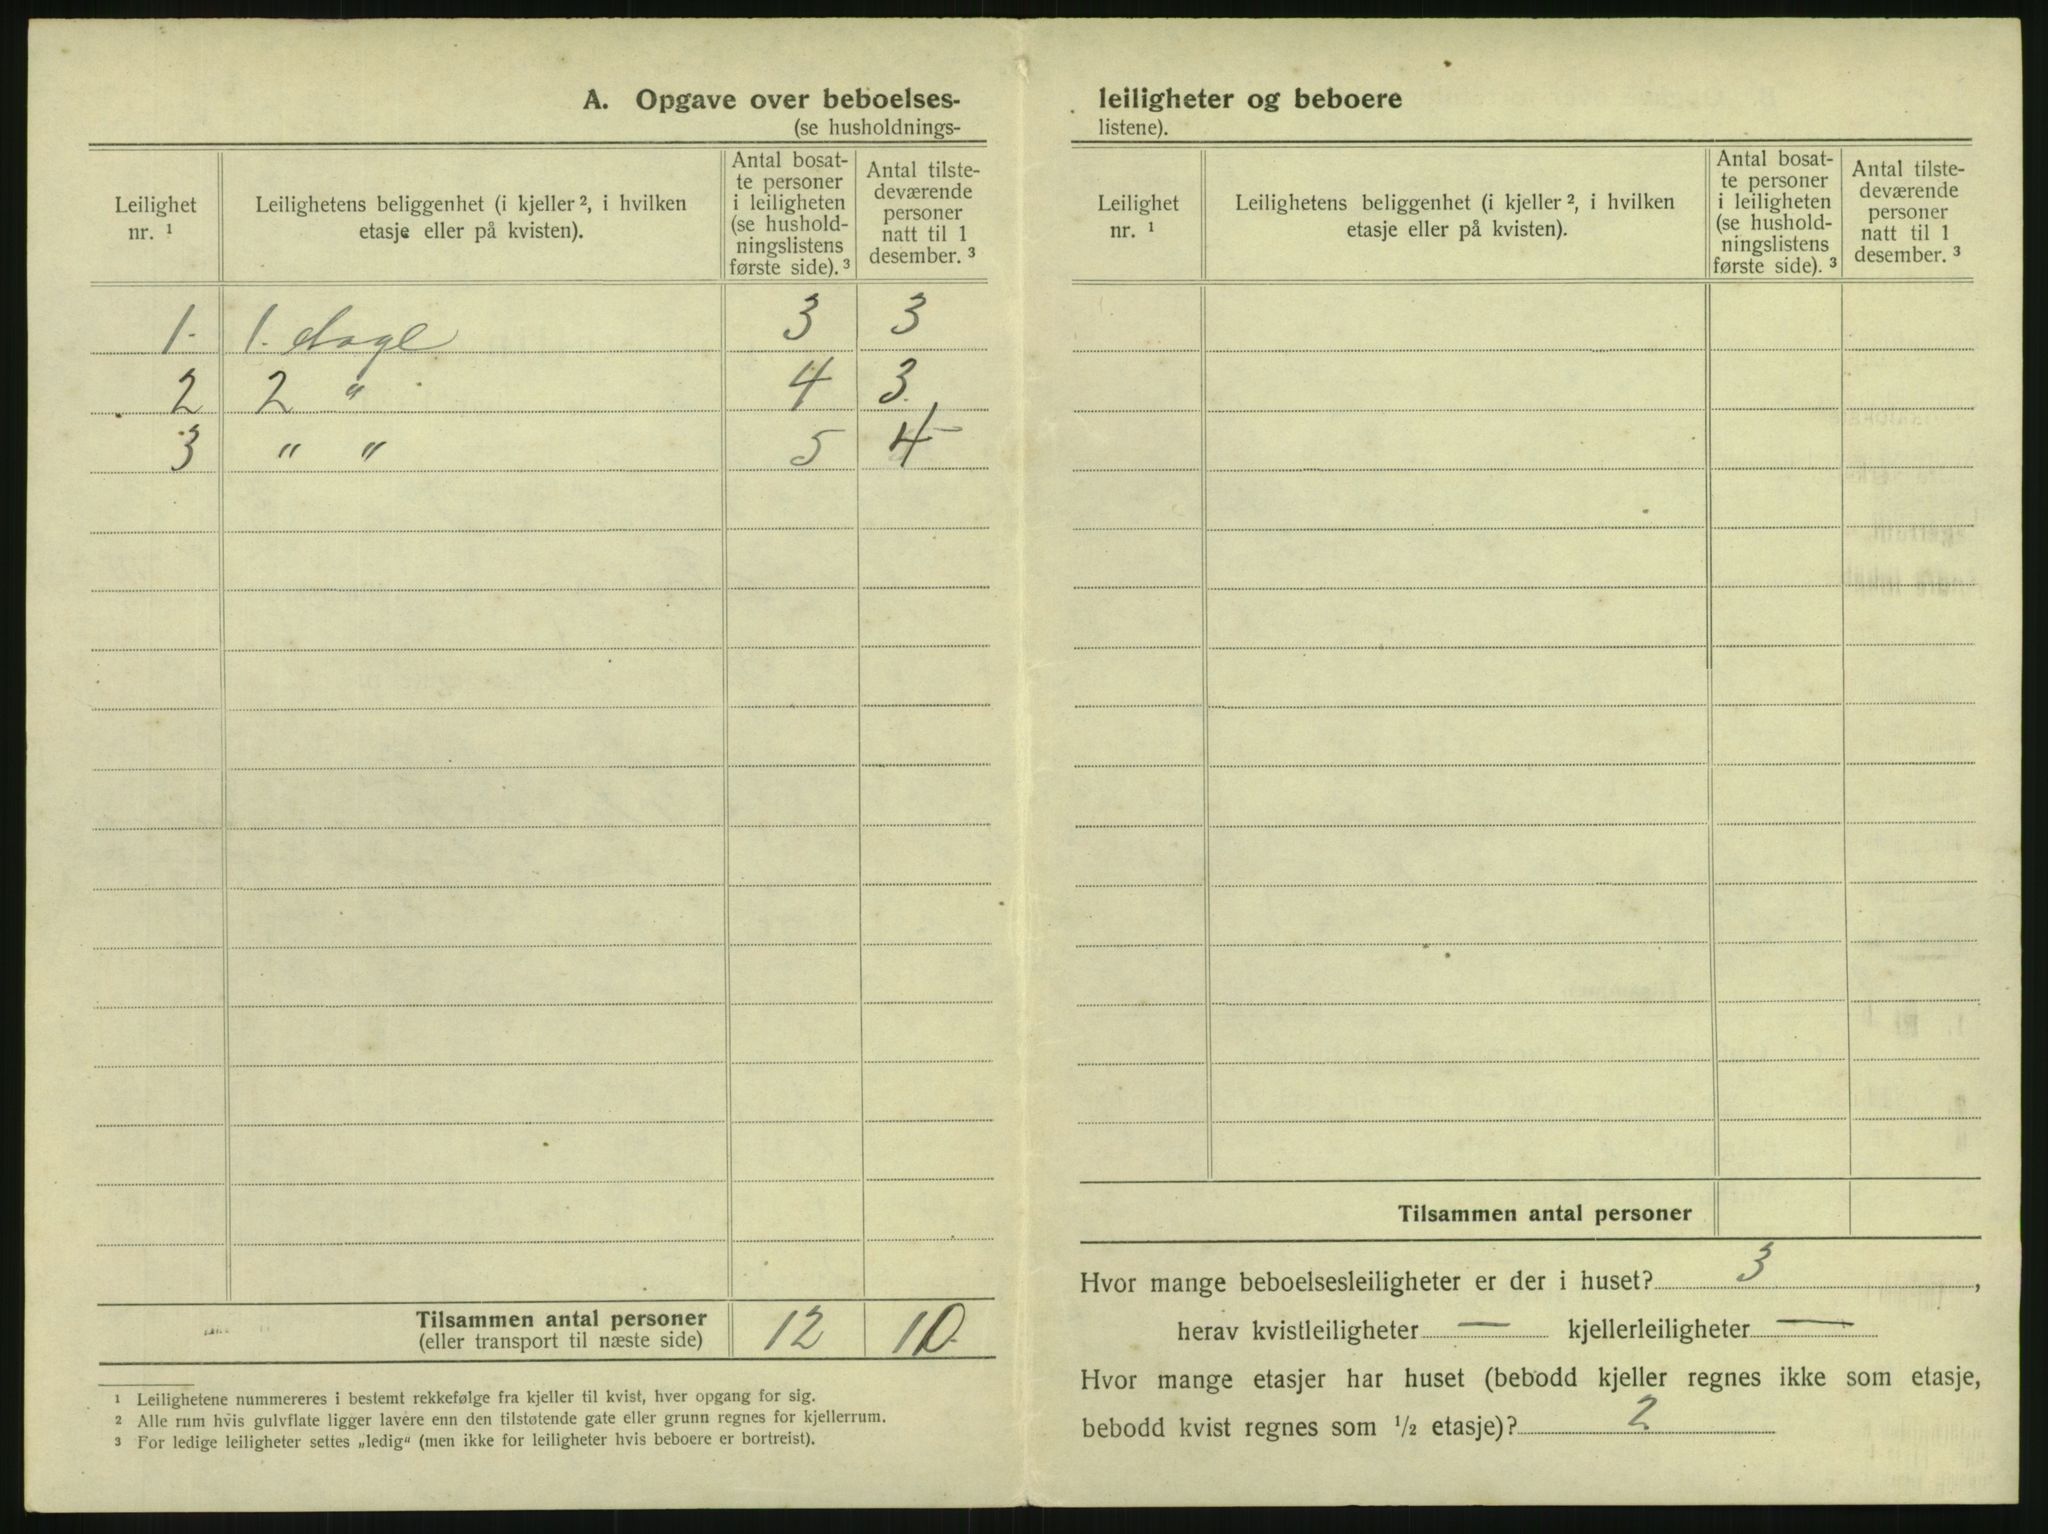 A. Opgave over beboelses-
(se husholdnings-
Leilighet nr. ¹
Leilighetens beliggenhet (i kjeller ², i hvilken etasje eller på kvisten).
Antal bosat-te personer i leiligheten (se hushold-ningslistens første side). ³
Antal tilste-deværende personer natt til 1 desember. ³
1. 1. etage 3 3
2 2 " 4 3
3 " " 5 4
Tilsammen antal personer 12 10
(eller transport til næste side)
¹ Leilighetene nummereres i bestemt rekkefølge fra kjeller til kvist, hver opgang for sig.
² Alle rum hvis gulvflate ligger lavere enn den tilstøtende gate eller grunn regnes for kjellerrum.
³ For ledige leiligheter settes „ledig“ (men ikke for leiligheter hvis beboere er bortreist).
leiligheter og beboere
listene).
Leilighet nr. ¹
Leilighetens beliggenhet (i kjeller ², i hvilken etasje eller på kvisten).
Antal bosat-te personer i leiligheten (se hushold-ningslistens første side). ³
Antal tilste-deværende personer natt til 1 desember. ³
Tilsammen antal personer
Hvor mange beboelsesleiligheter er der i huset? 3,
herav kvistleiligheter — kjellerleiligheter —
Hvor mange etasjer har huset (bebodd kjeller regnes ikke som etasje,
bebodd kvist regnes som ½ etasje)? 2